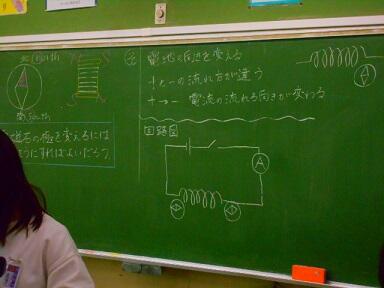 北 north
南 south
磁石の極を変えるには
ようにすればよいだろう。
予
電池の向きを変える
+と-の流れ方が違う
+→- 電流の流れる向きが変わる
回路図
A
A